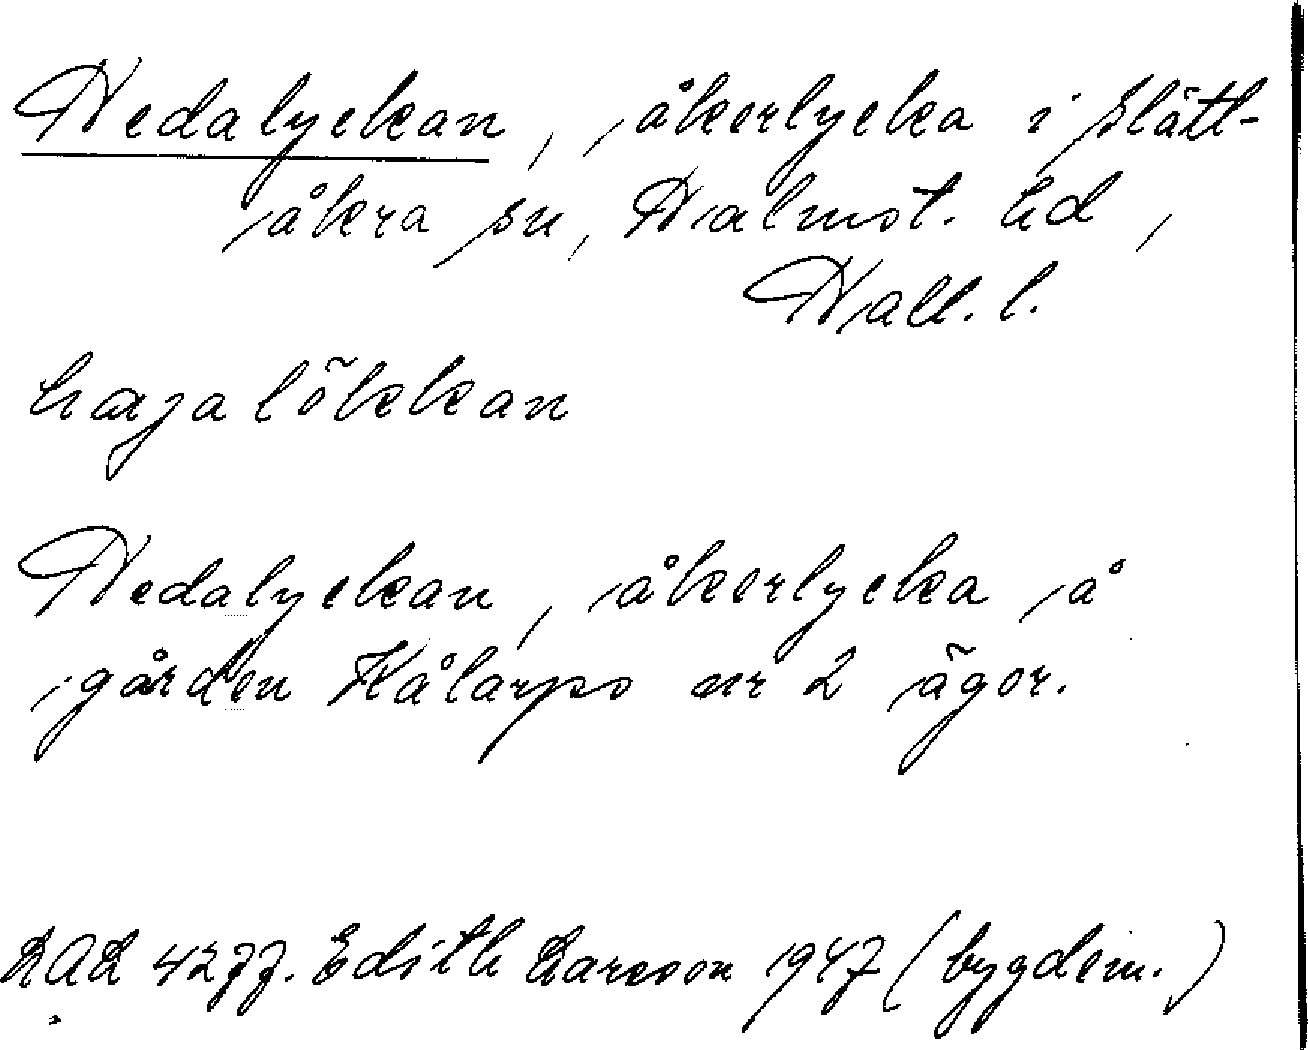 Hedalyckan, åkerlycka i Slätt-
åkra sn, Halmst. hd,
Hall. l.
hæjalökkan
Hedalyckan, åkerlycka å
gården Kålarps nr 2 ägor.
LAL 4277. Edith Larsson 1947 (bygdem.)